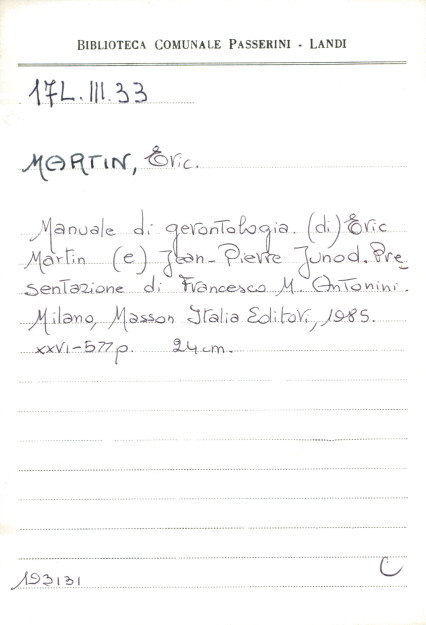 BIBLIOTECA COMUNALE PASSERINI - LANDI
17L.III.33
MARTIN, Eric.
Manuale di gerontologia. (di) Eric
Martin (e) Jean-Pierre Junod. Pre
sentazione di Francesco M. Antonini.
Milano, Masson Italia Editori, 1985.
XXVI-577p. 24cm.
193131
C